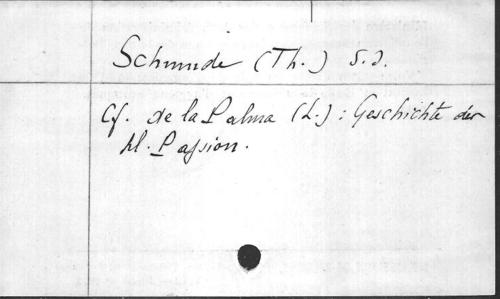 Schmude (Th.) S.J.
Cf. de la Palma (L.) : Geschichte der
hl. Passion.